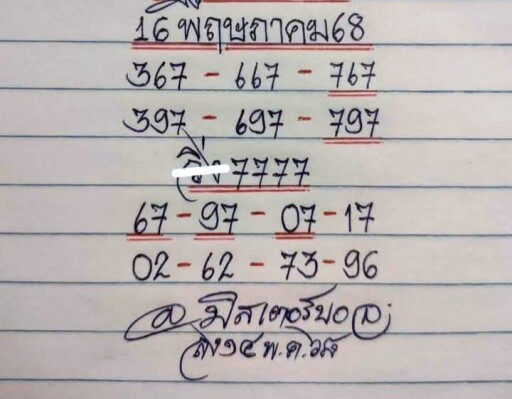 16 พฤษภาคม68
367 - 667 - 767
397 - 697 - 797
วิ่ง 7777
67 - 97 - 07 - 17
02 - 62 - 73 - 96
มิสเตอร์บอล
พ.ค. ๖๘